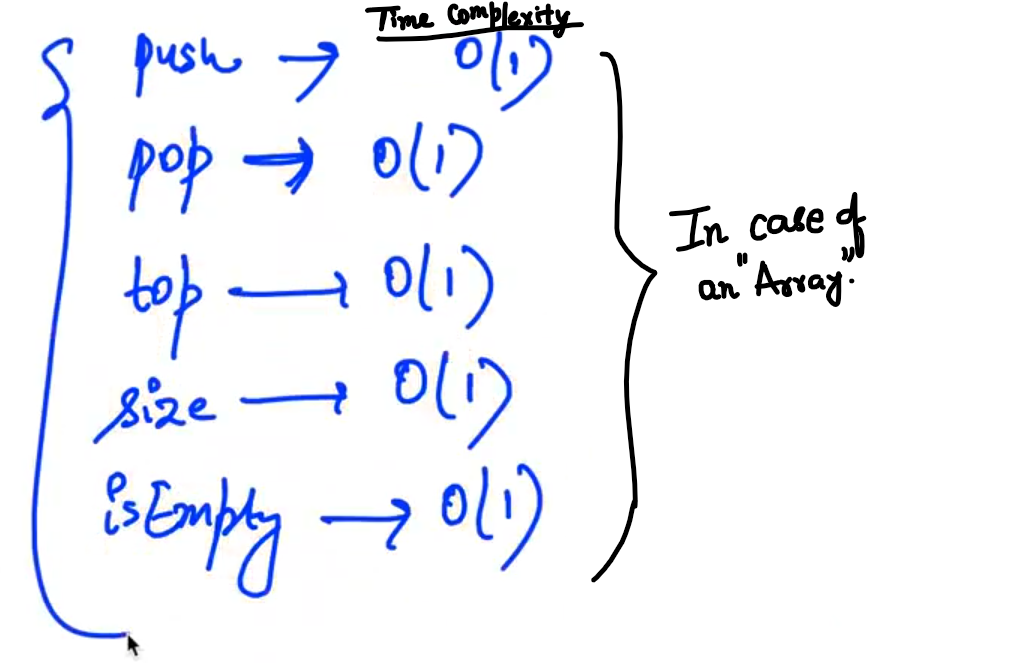 Time Complexity
push → O(1)
pop → O(1)
top → O(1)
size → O(1)
isEmpty → O(1)
In case of
an "Array".